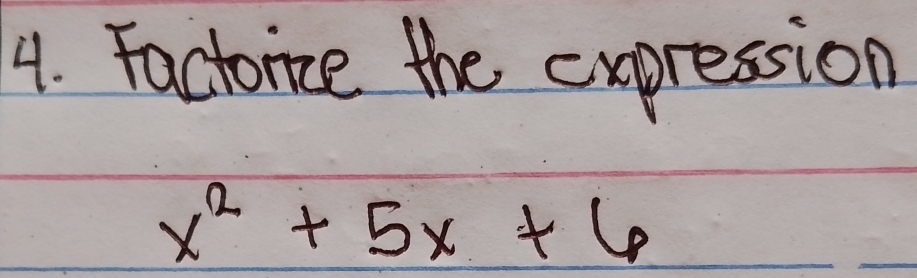 4. Factorize the expression
x² + 5x + 6